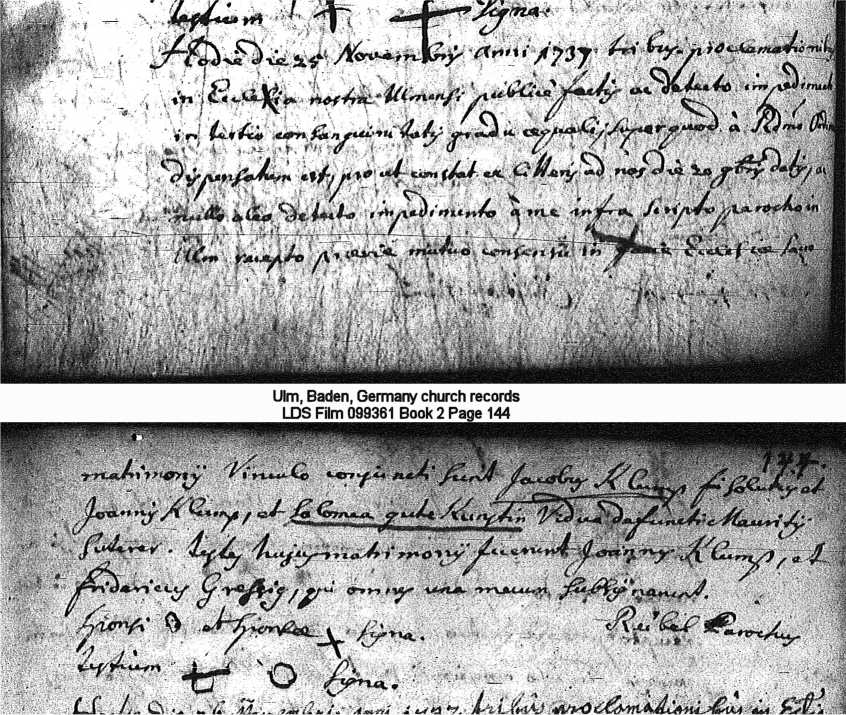 testium Signa.
Hodie die 25 Novembris anni 1737 tribus proclamationibus
in Ecclesia nostra Ulmensi publice factis ac detecto impedimento
in tertio consanguinitatis gradu æquali, super quod à Rdmo
dispensatum est, prout constat ex litteris ad nos die 20 9bris datis, ac
nullo alio detecto impedimento à me infra scripto parocho in
Ulm recepto prævie mutuo consensu in facie Ecclesiæ sacro
Ulm, Baden, Germany church records
LDS Film 099361 Book 2 Page 144
144.
matrimonÿ Vinculo conjuncti sunt Jacobus Klump solutus et
Joannis Klump, et Salomea Vidua defuncti Mauritÿ
Suterer. testes hujus matrimonÿ fuerunt Joannes Klump, et
Fridericus Gressig, qui omnes una mecum subsignarunt.
Sponsi et Sponsæ Signa. Reibel Parochus
testium Signa.